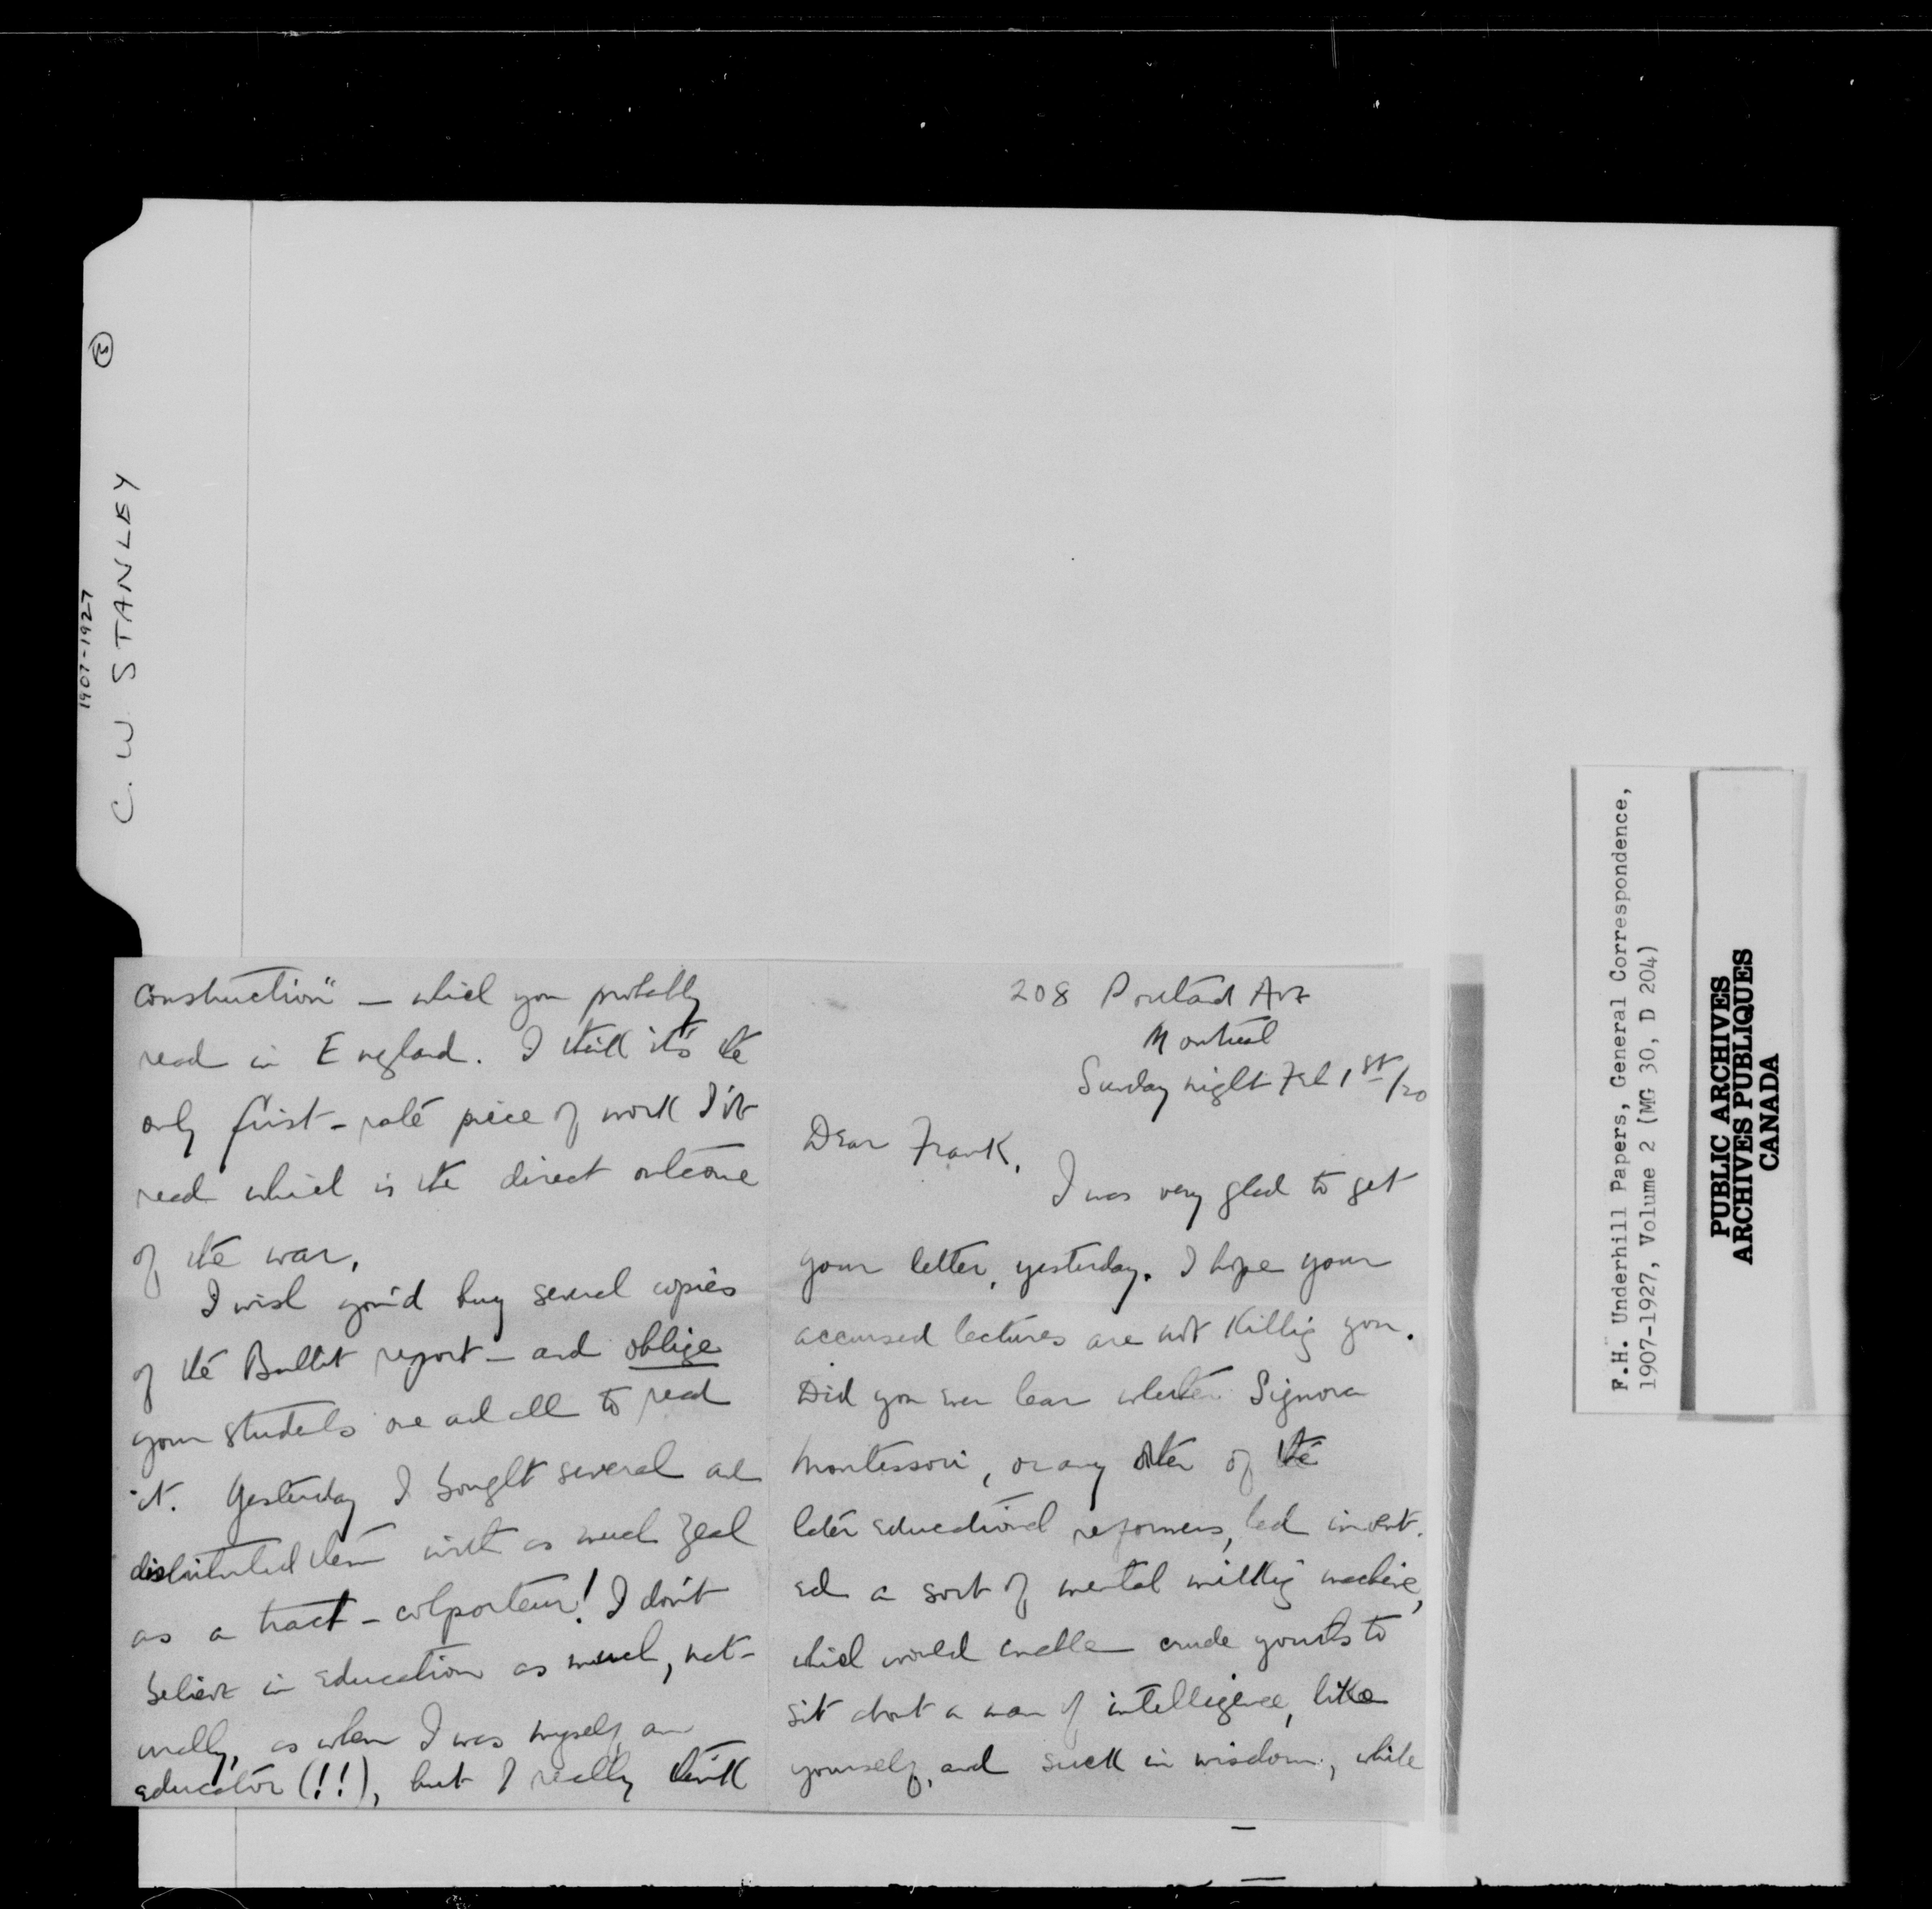 1907-1927
C. W STANLEY
208 Portland Ave
Montreal
Sunday night Feb 1st/20
Dear Frank,
I was very glad to get
your letter, yesterday. I hope your
accursed lectures are not killing you.
Did you ever hear whether Signora
Montessori, or any other of the
later educational reformers, had invent-
ed a sort of mental milking machine,
which would enable crude youths to
sit about a man of intelligence, like
yourself, and suck in wisdom, while
construction" — which you probably
read in England. I think it's the
only first-rate piece of work I've
read which is the direct outcome
of the war.
I wish you'd buy several copies
of the Bullit report — and oblige
your students one and all to read
it. Yesterday I bought several and
distributed them with as much zeal
as a tract-colporteur! I don't
believe in education as much, nat-
urally, as when I was myself an
educator (!!), but I really think
F.H. Underhill Papers, General Correspondence,
1907-1927, Volume 2 (MG 30, D 204)
PUBLIC ARCHIVES
ARCHIVES PUBLIQUES
CANADA